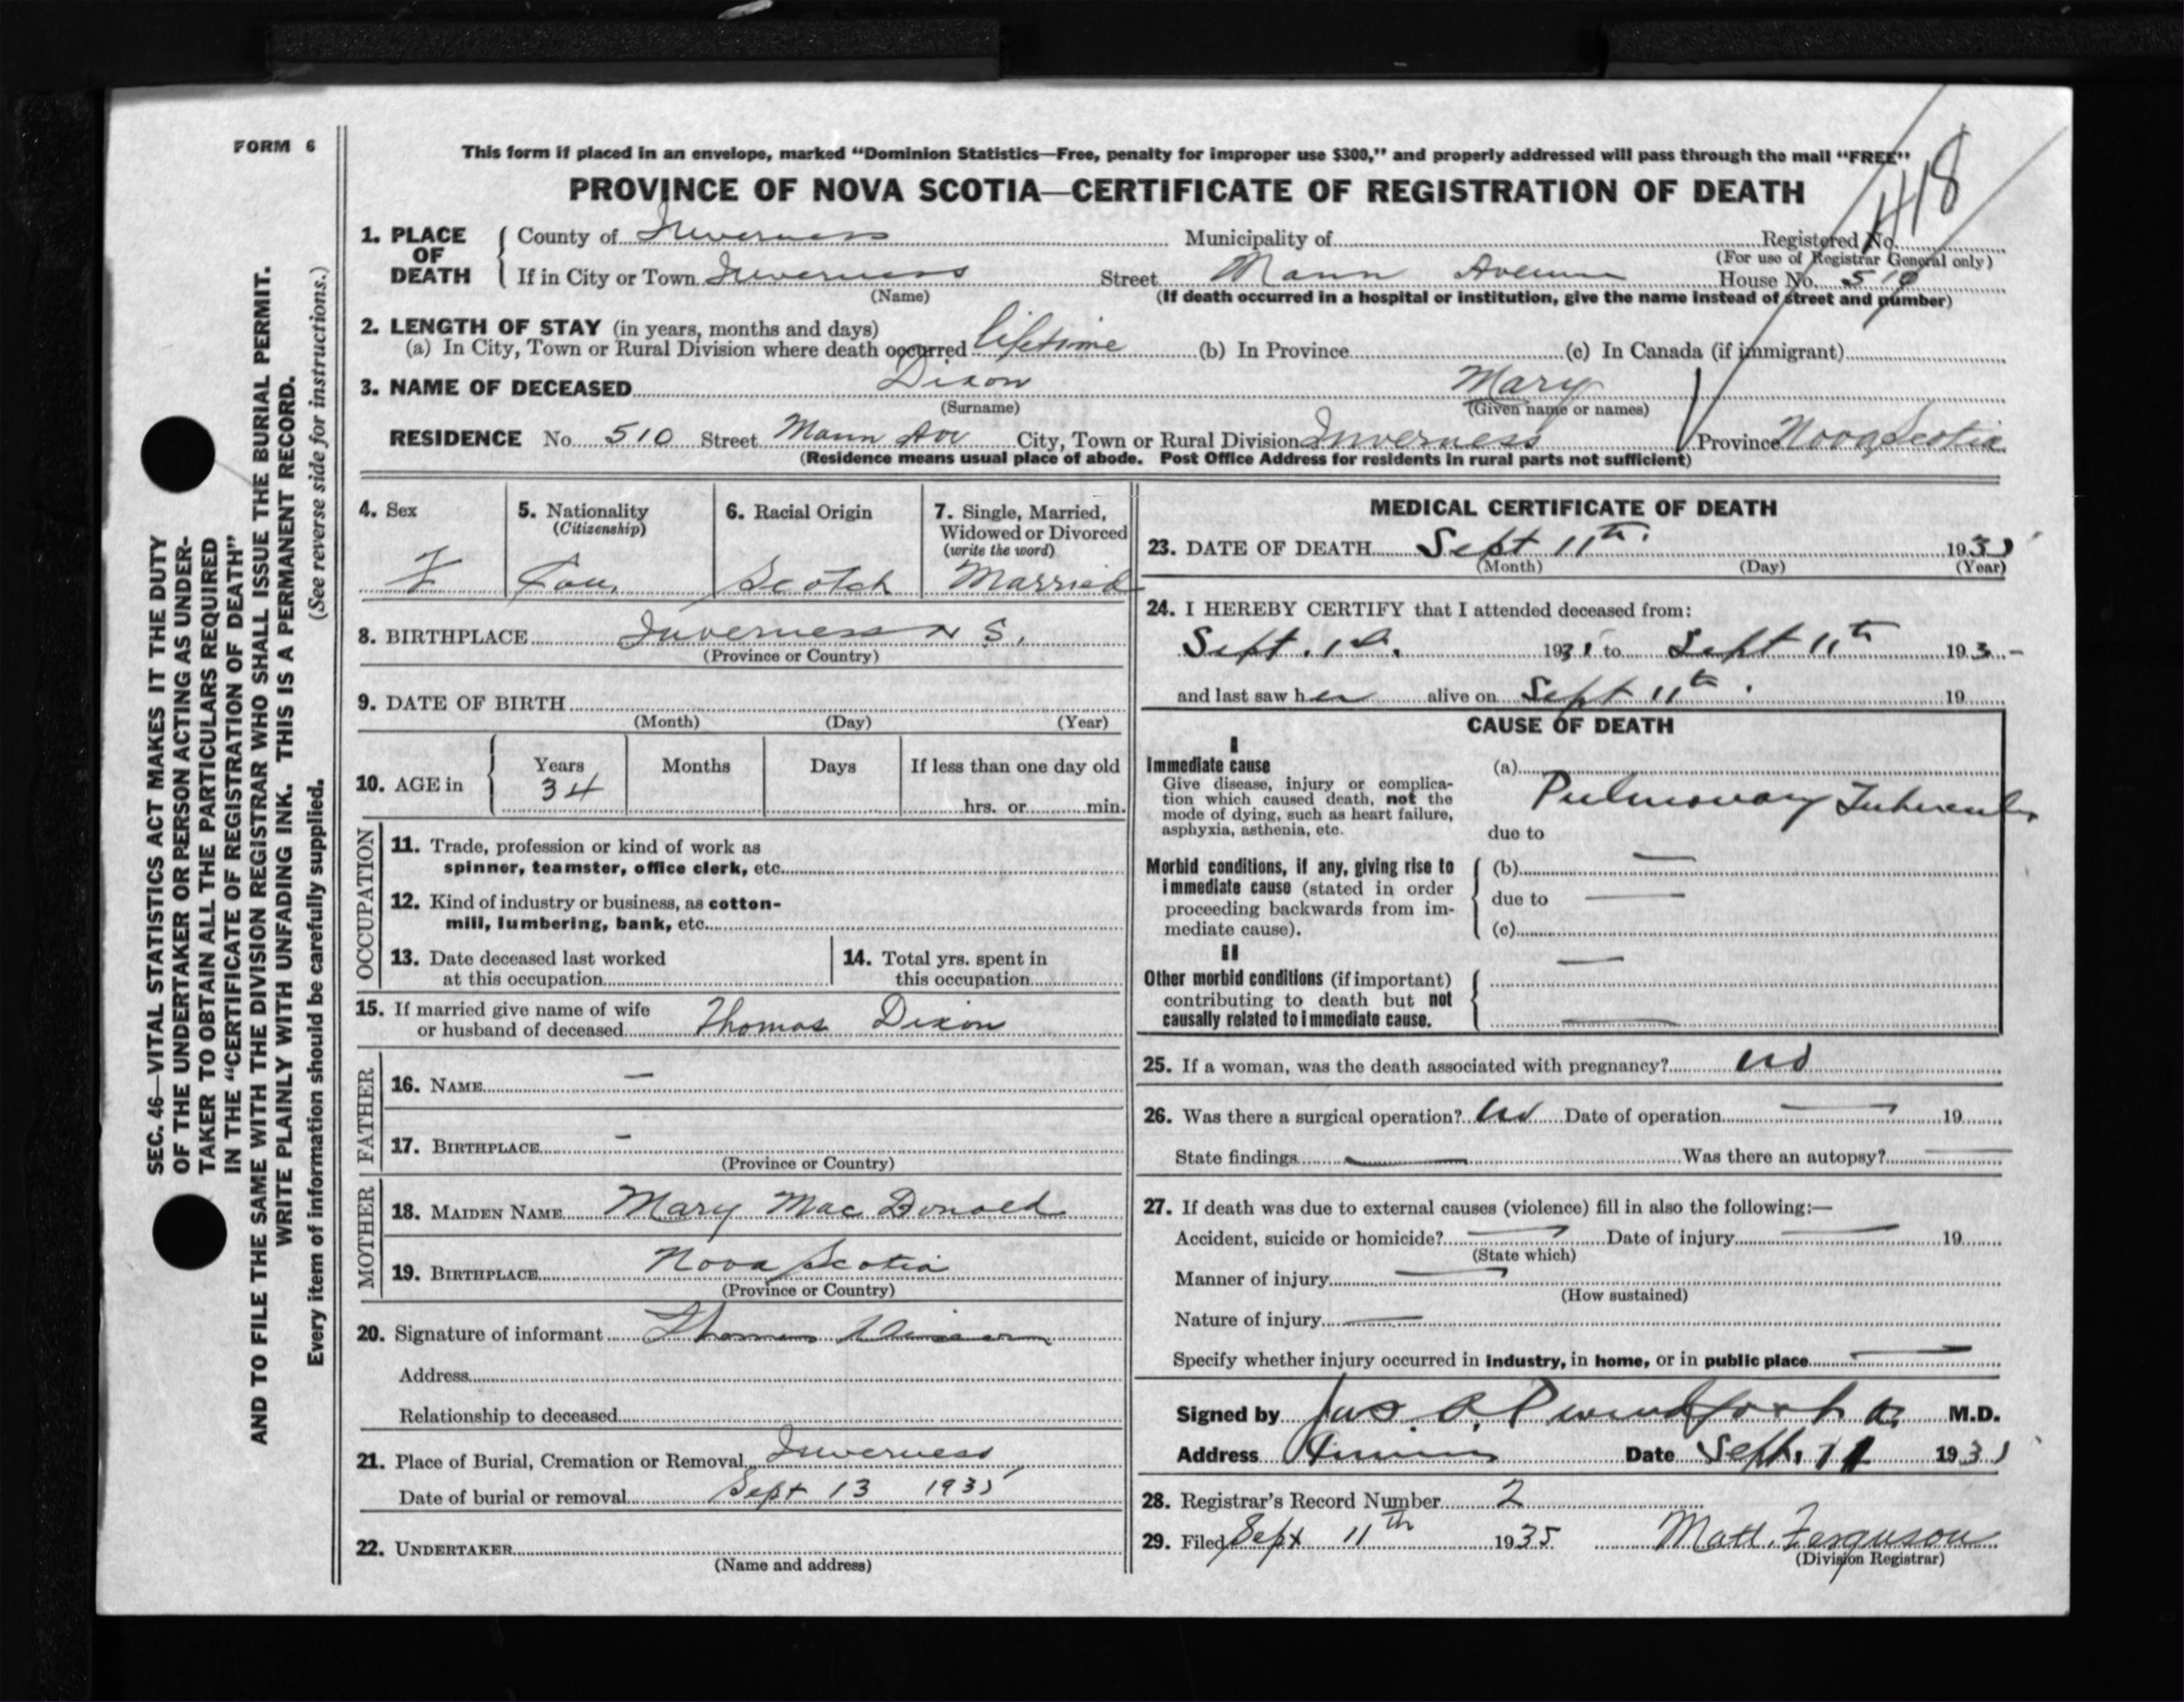 FORM 6
This form if placed in an envelope, marked “Dominion Statistics—Free, penalty for improper use $300,” and properly addressed will pass through the mail “FREE”
PROVINCE OF NOVA SCOTIA—CERTIFICATE OF REGISTRATION OF DEATH
418
1. PLACE OF DEATH { County of Inverness Municipality of Registered No.
(For use of Registrar General only)
If in City or Town Inverness Street Mann Avenue House No. 510
(Name) (If death occurred in a hospital or institution, give the name instead of street and number)
2. LENGTH OF STAY (in years, months and days)
(a) In City, Town or Rural Division where death occurred lifetime (b) In Province (c) In Canada (if immigrant)
3. NAME OF DECEASED Dixon Mary
(Surname) (Given name or names)
RESIDENCE No. 510 Street Mann Ave City, Town or Rural Division Inverness Province Nova Scotia
(Residence means usual place of abode. Post Office Address for residents in rural parts not sufficient)
4. Sex
F
5. Nationality
(Citizenship)
Can.
6. Racial Origin
Scotch
7. Single, Married,
Widowed or Divorced
(write the word)
Married
8. BIRTHPLACE Inverness N S.
(Province or Country)
9. DATE OF BIRTH
(Month) (Day) (Year)
10. AGE in { Years Months Days If less than one day old
34 hrs. or min.
OCCUPATION
11. Trade, profession or kind of work as
spinner, teamster, office clerk, etc.
12. Kind of industry or business, as cotton-
mill, lumbering, bank, etc.
13. Date deceased last worked
at this occupation
14. Total yrs. spent in
this occupation
15. If married give name of wife
or husband of deceased Thomas Dixon
FATHER
16. NAME —
17. BIRTHPLACE —
(Province or Country)
MOTHER
18. MAIDEN NAME Mary Mac Donald
19. BIRTHPLACE Nova Scotia
(Province or Country)
20. Signature of informant Thomas Dixon
Address
Relationship to deceased
21. Place of Burial, Cremation or Removal Inverness
Date of burial or removal Sept 13 1935
22. UNDERTAKER
(Name and address)
MEDICAL CERTIFICATE OF DEATH
23. DATE OF DEATH Sept 11th 1935
(Month) (Day) (Year)
24. I HEREBY CERTIFY that I attended deceased from:
Sept. 1st. 1935 to Sept 11th 193
and last saw her alive on Sept 11th 19
CAUSE OF DEATH
I
Immediate cause
Give disease, injury or complica-
tion which caused death, not the
mode of dying, such as heart failure,
asphyxia, asthenia, etc.
(a)
Pulmonary Tuberculosis
due to
Morbid conditions, if any, giving rise to
immediate cause (stated in order
proceeding backwards from im-
mediate cause).
(b) —
due to —
(c)
II
Other morbid conditions (if important)
contributing to death but not
causally related to immediate cause.
—
—
25. If a woman, was the death associated with pregnancy? no
26. Was there a surgical operation? no Date of operation — 19
State findings — Was there an autopsy? —
27. If death was due to external causes (violence) fill in also the following:—
Accident, suicide or homicide? — Date of injury — 19
(State which)
Manner of injury —
(How sustained)
Nature of injury —
Specify whether injury occurred in industry, in home, or in public place —
Signed by Jas M.D.
Address Date Sept. 11 1935
28. Registrar’s Record Number 2
29. Filed Sept 11th 1935 Matt. Ferguson
(Division Registrar)
SEC. 46—VITAL STATISTICS ACT MAKES IT THE DUTY
OF THE UNDERTAKER OR PERSON ACTING AS UNDER-
TAKER TO OBTAIN ALL THE PARTICULARS REQUIRED
IN THE “CERTIFICATE OF REGISTRATION OF DEATH”
AND TO FILE THE SAME WITH THE DIVISION REGISTRAR WHO SHALL ISSUE THE BURIAL PERMIT.
WRITE PLAINLY WITH UNFADING INK. THIS IS A PERMANENT RECORD.
Every item of information should be carefully supplied. (See reverse side for instructions.)